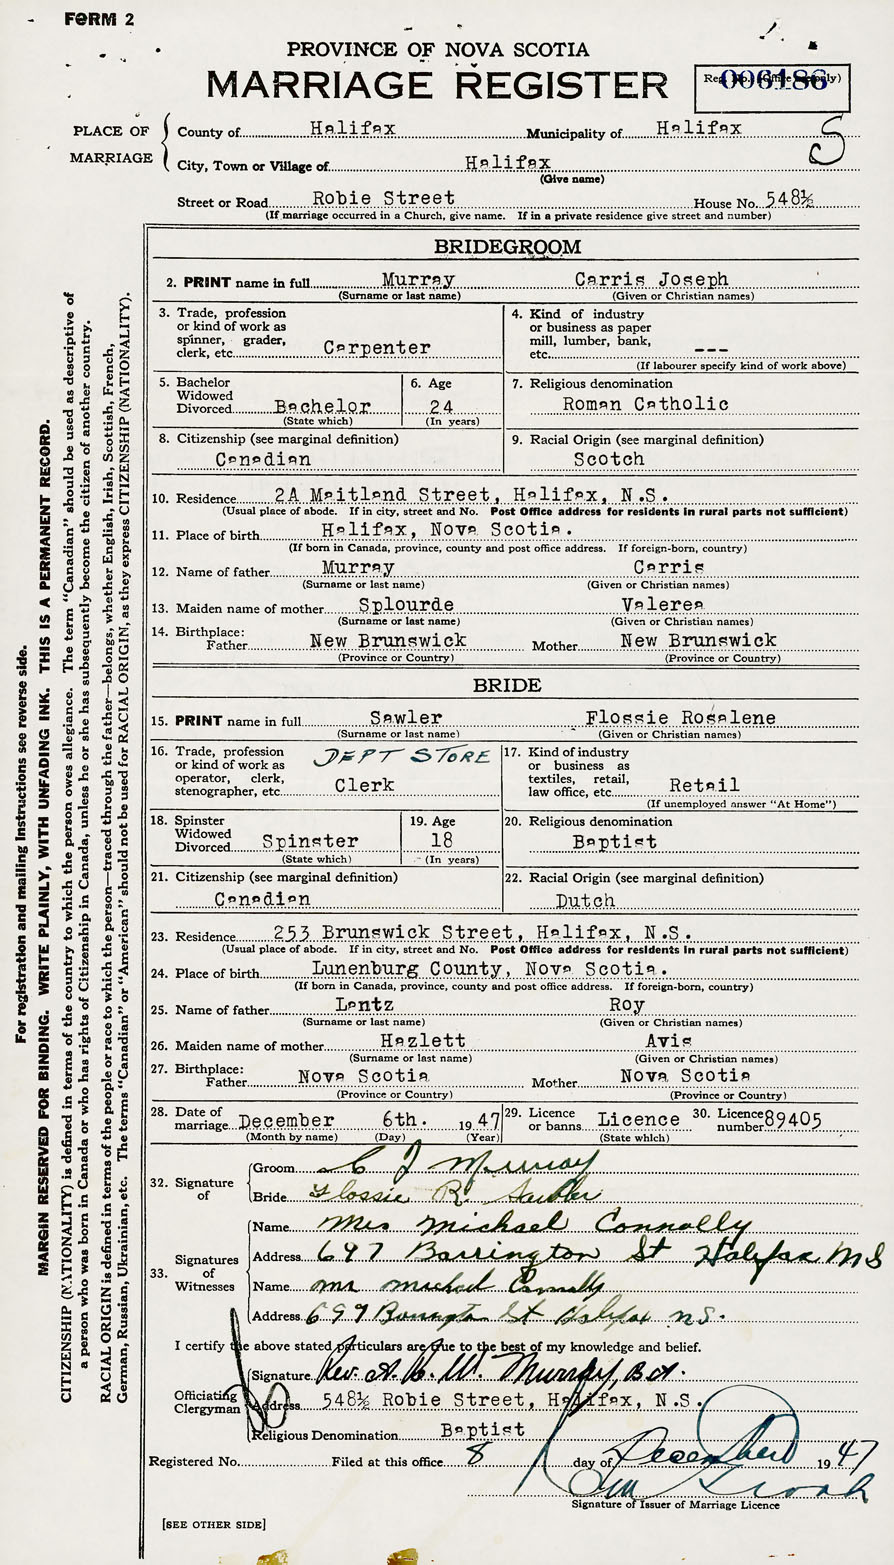 FORM 2
PROVINCE OF NOVA SCOTIA
MARRIAGE REGISTER
Reg. No. (Office use only)
006186
PLACE OF MARRIAGE
County of Halifax Municipality of Halifax
S
City, Town or Village of Halifax
(Give name)
Street or Road Robie Street House No. 548½
(If marriage occurred in a Church, give name. If in a private residence give street and number)
BRIDEGROOM
2. PRINT name in full Murray Carris Joseph
(Surname or last name) (Given or Christian names)
3. Trade, profession or kind of work as spinner, grader, clerk, etc. Carpenter
4. Kind of industry or business as paper mill, lumber, bank, etc. ---
(If labourer specify kind of work above)
5. Bachelor Widowed Divorced Bachelor
(State which)
6. Age 24
(In years)
7. Religious denomination
Roman Catholic
8. Citizenship (see marginal definition)
Canadian
9. Racial Origin (see marginal definition)
Scotch
10. Residence 2A Maitland Street, Halifax, N.S.
(Usual place of abode. If in city, street and No. Post Office address for residents in rural parts not sufficient)
11. Place of birth Halifax, Nova Scotia.
(If born in Canada, province, county and post office address. If foreign-born, country)
12. Name of father Murray Carris
(Surname or last name) (Given or Christian names)
13. Maiden name of mother Splourde Valerea
(Surname or last name) (Given or Christian names)
14. Birthplace:
Father New Brunswick Mother New Brunswick
(Province or Country) (Province or Country)
BRIDE
15. PRINT name in full Sawler Flossie Rosalene
(Surname or last name) (Given or Christian names)
16. Trade, profession or kind of work as operator, clerk, stenographer, etc. DEPT STORE
Clerk
17. Kind of industry or business as textiles, retail, law office, etc. Retail
(If unemployed answer "At Home")
18. Spinster Widowed Divorced Spinster
(State which)
19. Age 18
(In years)
20. Religious denomination
Baptist
21. Citizenship (see marginal definition)
Canadian
22. Racial Origin (see marginal definition)
Dutch
23. Residence 253 Brunswick Street, Halifax, N.S.
(Usual place of abode. If in city, street and No. Post Office address for residents in rural parts not sufficient)
24. Place of birth Lunenburg County, Nova Scotia.
(If born in Canada, province, county and post office address. If foreign-born, country)
25. Name of father Lantz Roy
(Surname or last name) (Given or Christian names)
26. Maiden name of mother Hazlett Avis
(Surname or last name) (Given or Christian names)
27. Birthplace:
Father Nova Scotia Mother Nova Scotia
(Province or Country) (Province or Country)
28. Date of marriage December 6th. 1947
(Month by name) (Day) (Year)
29. Licence or banns Licence
(State which)
30. Licence number 89405
32. Signature of
Groom C J Murray
Bride Flossie R. Sawler
33. Signatures of Witnesses
Name Mrs Michael Connolly
Address 697 Barrington St Halifax N S
Name Mr Michael Connolly
Address 699 Barrington St Halifax N.S.
I certify the above stated particulars are true to the best of my knowledge and belief.
Officiating Clergyman
Signature Rev. A. W. Murray, B.A.
Address 548½ Robie Street, Halifax, N.S.
Religious Denomination Baptist
Registered No. Filed at this office 8 day of December 1947
Signature of Issuer of Marriage Licence
[SEE OTHER SIDE]
For registration and mailing instructions see reverse side.
MARGIN RESERVED FOR BINDING. WRITE PLAINLY, WITH UNFADING INK. THIS IS A PERMANENT RECORD.
CITIZENSHIP (NATIONALITY) is defined in terms of the country to which the person owes allegiance. The term "Canadian" should be used as descriptive of
a person who was born in Canada or who has rights of Citizenship in Canada, unless he or she has subsequently become the citizen of another country.
RACIAL ORIGIN is defined in terms of the people or race to which the person—traced through the father—belongs, whether English, Irish, Scottish, French,
German, Russian, Ukrainian, etc. The terms "Canadian" or "American" should not be used for RACIAL ORIGIN, as they express CITIZENSHIP (NATIONALITY).